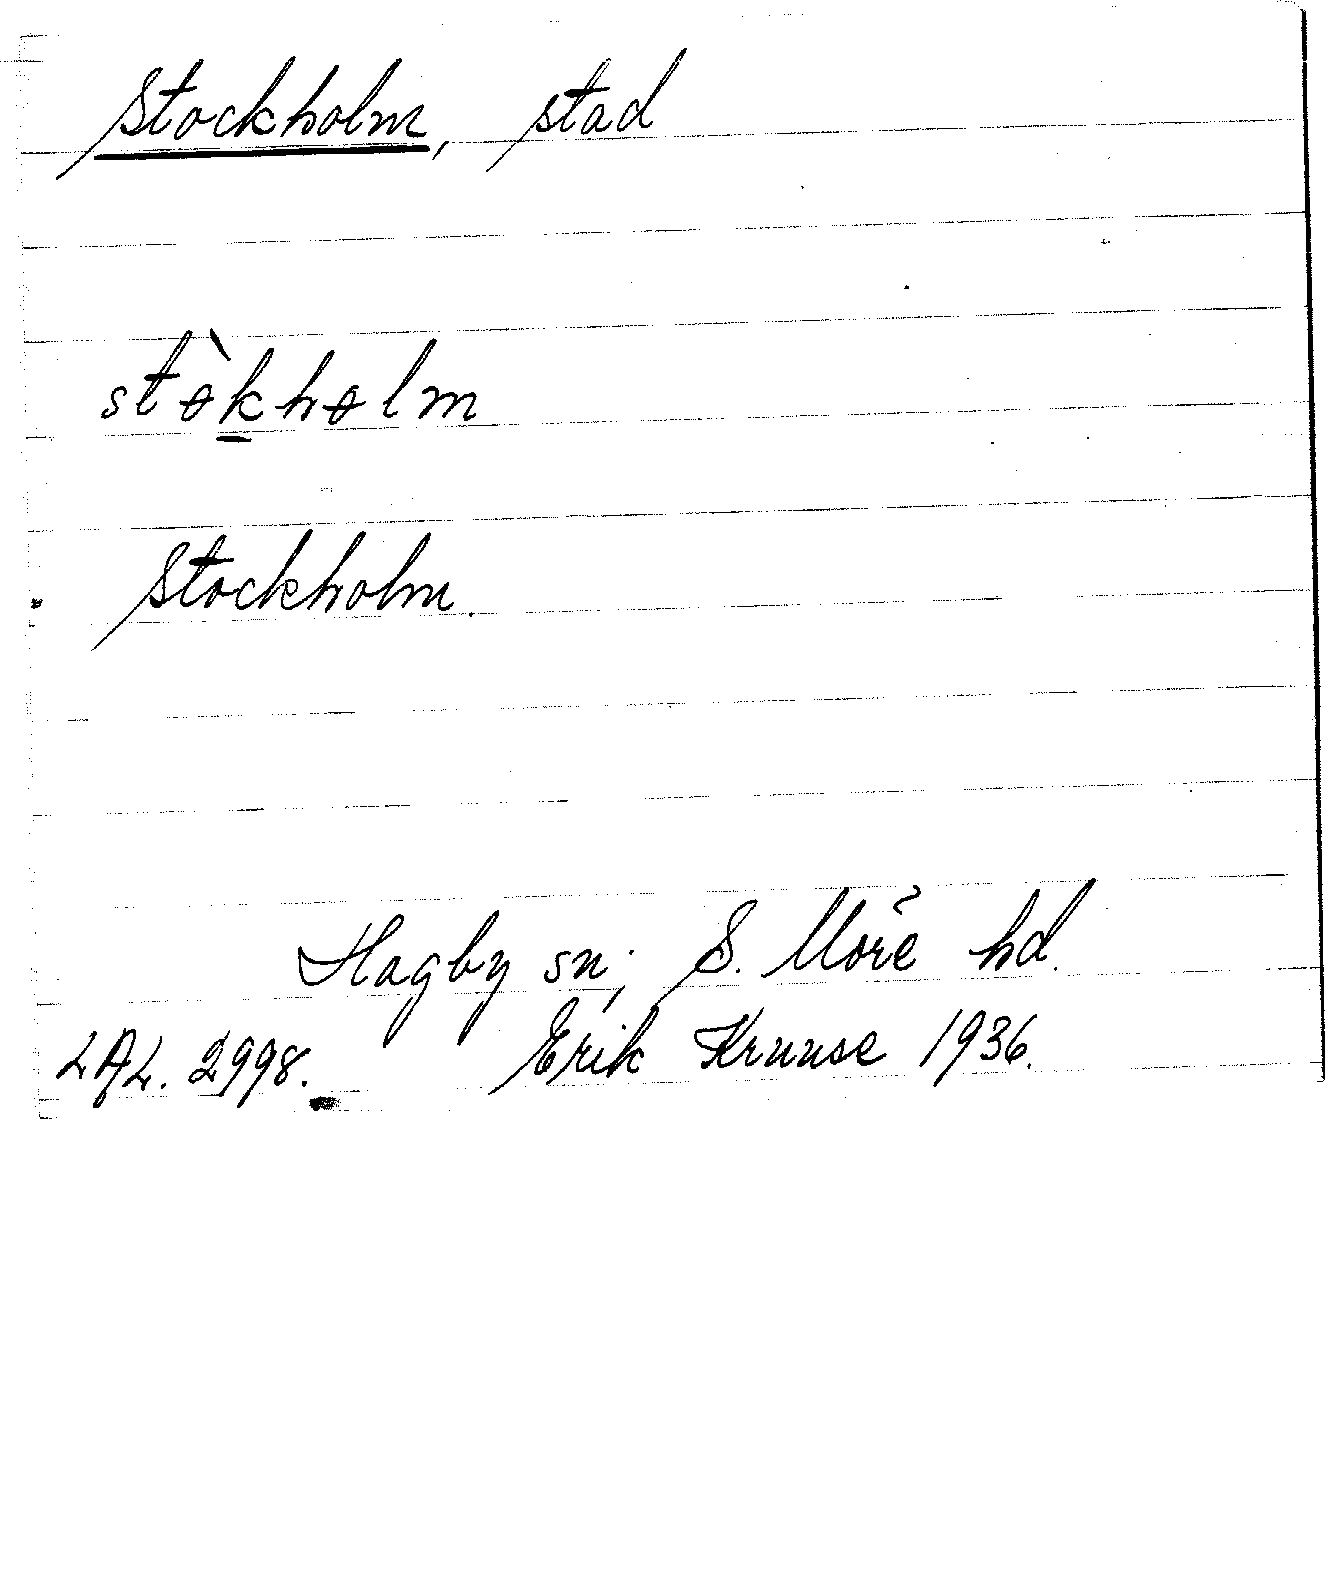 Stockholm, stad
stɵ̀k̲hɵlm
Stockholm.
Hagby sn; S. Möre hd.
LAL. 2998. Erik Kruuse 1936.